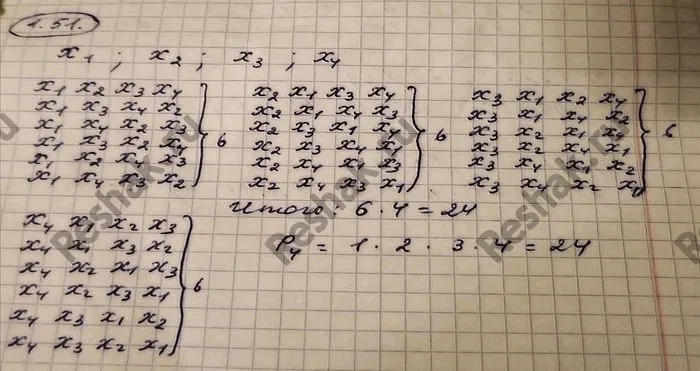 1.51.
x1 ; x2 ; x3 ; x4
x1 x2 x3 x4
x1 x3 x4 x2
x1 x4 x2 x3
x1 x3 x2 x4
x1 x2 x4 x3
x1 x4 x3 x2
6
x2 x1 x3 x4
x2 x1 x4 x3
x2 x3 x1 x4
x2 x3 x4 x1
x2 x4 x1 x3
x2 x4 x3 x1
6
x3 x1 x2 x4
x3 x1 x4 x2
x3 x2 x1 x4
x3 x2 x4 x1
x3 x4 x1 x2
x3 x4 x2 x1
6
Итого: 6 · 4 = 24
P4 = 1 · 2 · 3 · 4 = 24
x4 x1 x2 x3
x4 x1 x3 x2
x4 x2 x1 x3
x4 x2 x3 x1
x4 x3 x1 x2
x4 x3 x2 x1
6
Reshak.ru
Reshak.ru
Reshak.ru